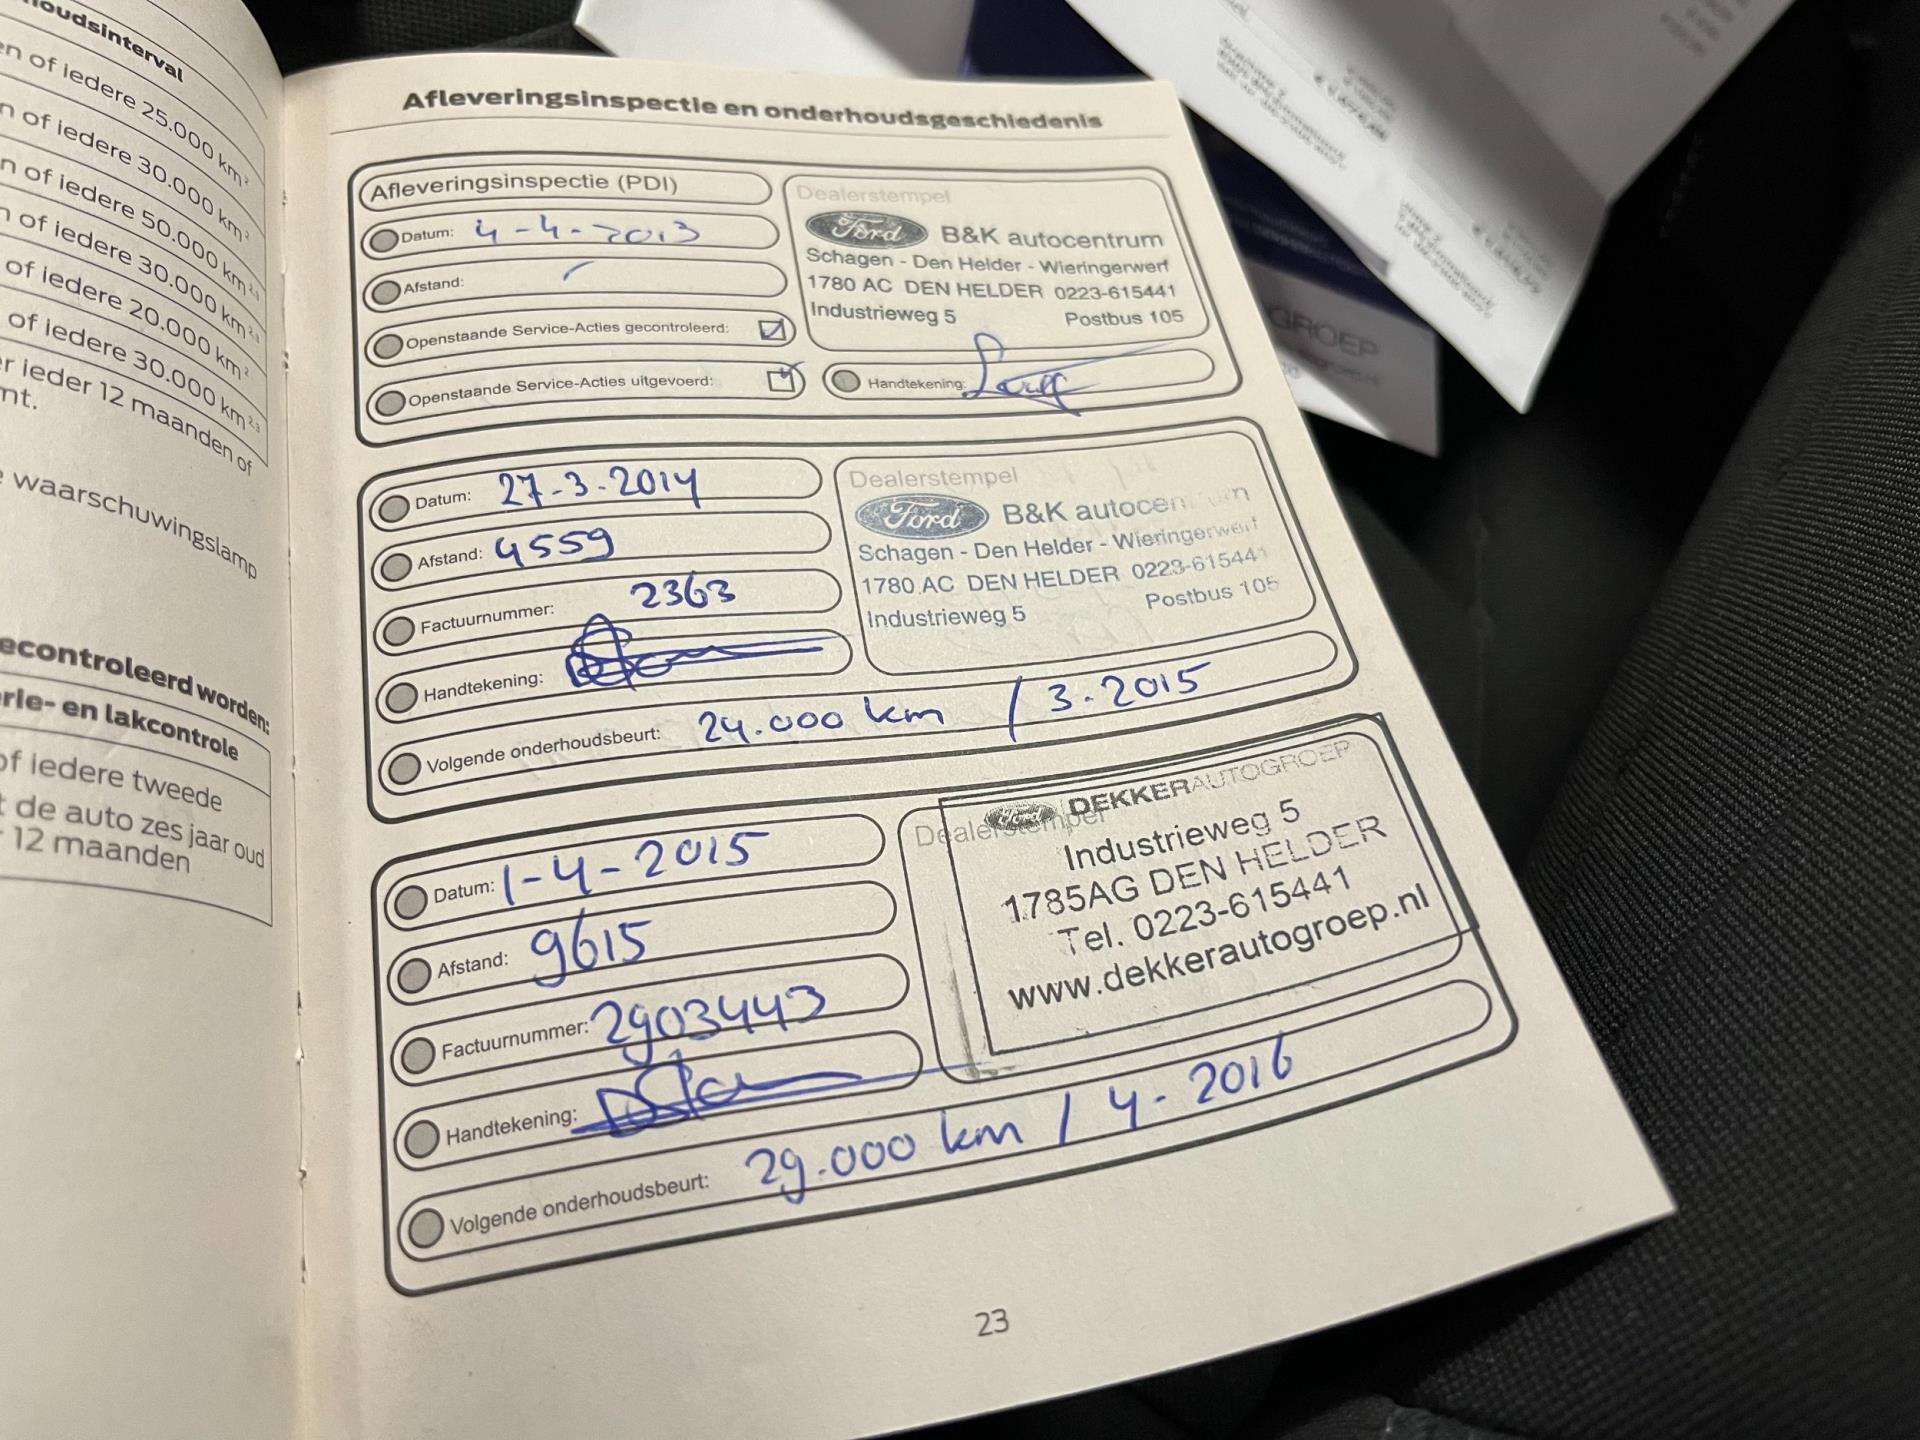 oudsinterval
en of iedere 25.000 km²
n of iedere 30.000 km²
n of iedere 50.000 km ²,³
n of iedere 30.000 km ²,³
of iedere 20.000 km²
of iedere 30.000 km ²,³
er ieder 12 maanden of
mt.
e waarschuwingslamp
econtroleerd worden:
rie- en lakcontrole
of iedere tweede
t de auto zes jaar oud
r 12 maanden
Afleveringsinspectie en onderhoudsgeschiedenis
Afleveringsinspectie (PDI)
Datum: 4-4-2013
Afstand:
Openstaande Service-Acties gecontroleerd:
Openstaande Service-Acties uitgevoerd:
Dealerstempel
Ford B&K autocentrum
Schagen - Den Helder - Wieringerwerf
1780 AC DEN HELDER 0223-615441
Industrieweg 5 Postbus 105
Handtekening:
Datum: 27-3-2014
Afstand: 4559
Factuurnummer: 2363
Handtekening:
Volgende onderhoudsbeurt: 24.000 km / 3-2015
Dealerstempel
Ford B&K autocentrum
Schagen - Den Helder - Wieringerwerf
1780 AC DEN HELDER 0223-615441
Industrieweg 5 Postbus 105
Datum: 1-4-2015
Afstand: 9615
Factuurnummer: 2903443
Handtekening:
Volgende onderhoudsbeurt: 29.000 km / 4-2016
Dealerstempel
Ford DEKKERAUTOGROEP
Industrieweg 5
1785AG DEN HELDER
Tel. 0223-615441
www.dekkerautogroep.nl
23
GROEP